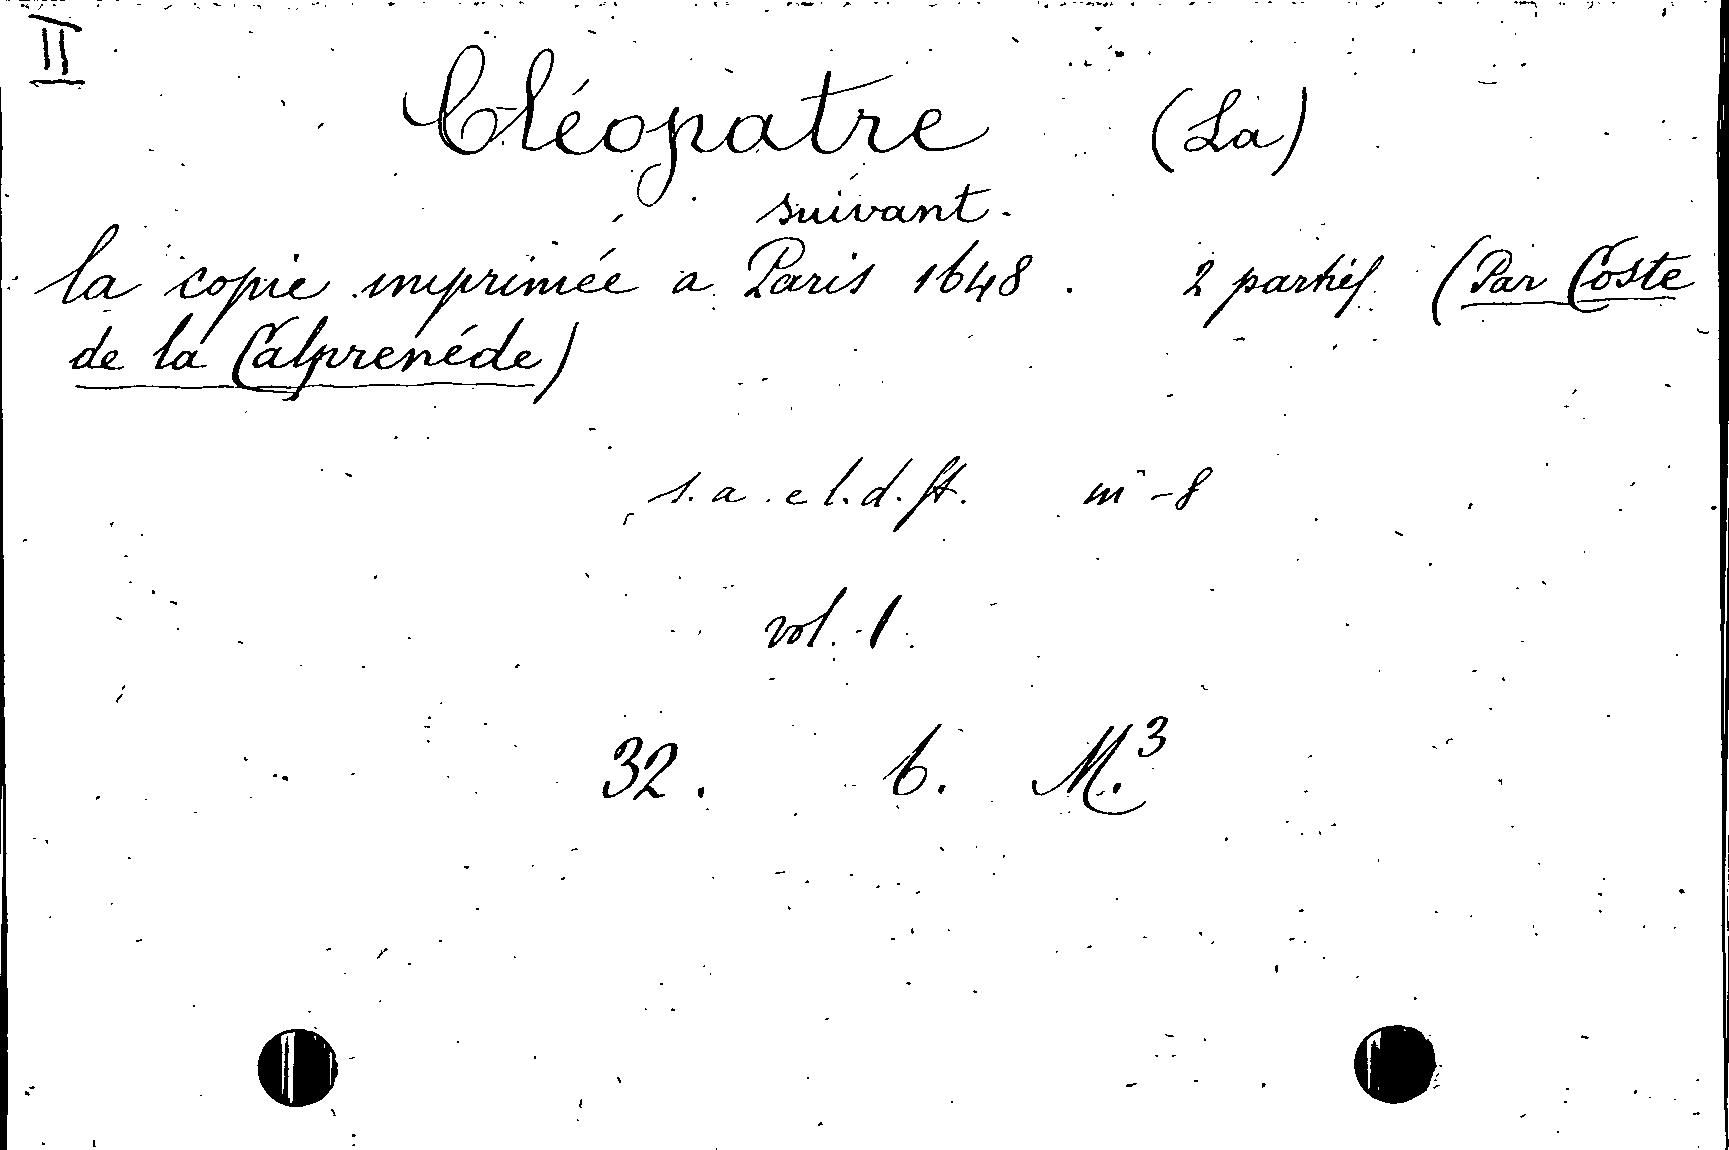 II
Cléopatre (La)
suivant.
la copie imprimée a Paris 1648. 2 parties (Par Coste
de la Calprenéde)
s. a. e l. d. st. in-8
vol. 1.
32. b. M.3